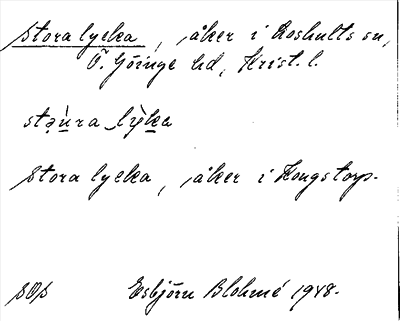 Stora lycka, åker i Loshults sn,
Ö. Göinge hd, Krist. l.
stạù̱ra lỳḵa
Stora lycka, åker i Kongstorp.
SOp Esbjörn Blohmé 1948.